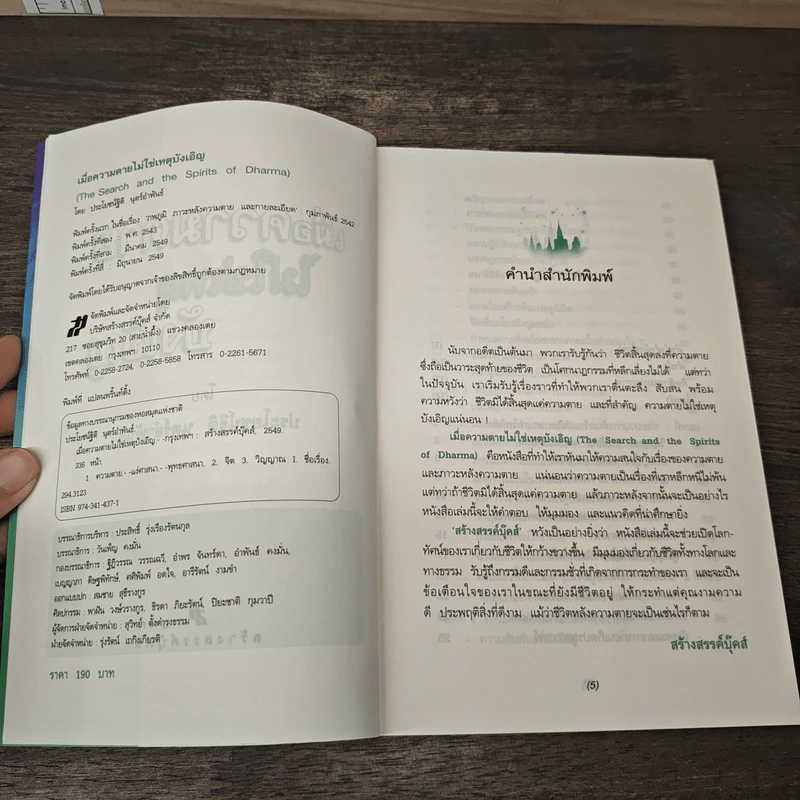 เมื่อความตายไม่ใช่เหตุบังเอิญ
(The Search and the Spirits of Dharma)
โดย ประโยชน์ฐิติ นุตร์อำพันธ์
พิมพ์ครั้งแรก ในชื่อเรื่อง 'ภพภูมิ ภาวะหลังความตาย และกายละเอียด' : กุมภาพันธ์ 2542
พิมพ์ครั้งที่สอง : พ.ค. 2543
พิมพ์ครั้งที่สาม : มีนาคม 2549
พิมพ์ครั้งที่สี่ : มิถุนายน 2549
จัดพิมพ์โดยได้รับอนุญาตจากเจ้าของลิขสิทธิ์ถูกต้องตามกฎหมาย
จัดพิมพ์และจัดจำหน่ายโดย
บริษัทสร้างสรรค์บุ๊คส์ จำกัด
217 ซอยสุขุมวิท 20 (สายน้ำผึ้ง) แขวงคลองเตย
เขตคลองเตย กรุงเทพฯ 10110
โทรศัพท์ 0-2258-2724, 0-2258-5858 โทรสาร 0-2261-5671
พิมพ์ที่ แปลนพริ้นท์ติ้ง
ข้อมูลทางบรรณานุกรมของหอสมุดแห่งชาติ
ประโยชน์ฐิติ นุตร์อำพันธ์.
เมื่อความตายไม่ใช่เหตุบังเอิญ.- -กรุงเทพฯ : สร้างสรรค์บุ๊คส์, 2549.
336 หน้า.
1 ความตาย.- -แง่ศาสนา.- -พุทธศาสนา. 2. จิต 3. วิญญาณ I. ชื่อเรื่อง.
294.3123
ISBN 974-341-437-1
บรรณาธิการบริหาร : ประสิทธิ์ รุ่งเรืองรัตนกุล
บรรณาธิการ : วันเพ็ญ คงมั่น
กองบรรณาธิการ : ฐิฏิวรรณ วรรณฉวี, อำพร จันทร์ดา, อำพันธ์ คงมั่น,
เบญญาภา ดิษฐพิทักษ์, คศิพิมพ์ อดใจ, อารีรัตน์ งามขำ
ออกแบบปก : สมชาย สุธีรางกูร
ศิลปกรรม : พาฝัน วงษ์วรางกูร, ธิรดา ภิยะรัตน์, ปิยะชาติ กุมวาปี
ผู้จัดการฝ่ายจัดจำหน่าย : สุวิทย์ ตั้งดำรงธรรม
ฝ่ายจัดจำหน่าย : รุ่งรัตน์ เถกิงเกียรติ
ราคา 190 บาท
คำนำสำนักพิมพ์
นับจากอดีตเป็นต้นมา พวกเรารับรู้กันว่า ชีวิตสิ้นสุดลงที่ความตาย
ซึ่งถือเป็นวาระสุดท้ายของชีวิต เป็นโศกนาฏกรรมที่หลีกเลี่ยงไม่ได้ แต่ทว่า
ในปัจจุบัน เราเริ่มรับรู้เรื่องราวที่ทำให้พวกเราตื่นตะลึง สับสน พร้อม
ความหวังว่า ชีวิตมิได้สิ้นสุดแค่ความตาย และที่สำคัญ ความตายไม่ใช่เหตุ
บังเอิญแน่นอน !
เมื่อความตายไม่ใช่เหตุบังเอิญ (The Search and the Spirits
of Dharma) คือหนังสือที่ทำให้เราหันมาให้ความสนใจกับเรื่องของความตาย
และภาวะหลังความตาย แน่นอนว่าความตายเป็นเรื่องที่เราหลีกหนีไม่พ้น
แต่ทว่าถ้าชีวิตมิได้สิ้นสุดแค่ความตาย แล้วภาวะหลังจากนั้นจะเป็นอย่างไร
หนังสือเล่มนี้จะให้คำตอบ ให้มุมมอง และแนวคิดที่น่าศึกษายิ่ง
'สร้างสรรค์บุ๊คส์' หวังเป็นอย่างยิ่งว่า หนังสือเล่มนี้จะช่วยเปิดโลก-
ทัศน์ของเราเกี่ยวกับชีวิตให้กว้างขวางขึ้น มีมุมมองเกี่ยวกับชีวิตทั้งทางโลกและ
ทางธรรม รับรู้ถึงกรรมดีและกรรมชั่วที่เกิดจากการกระทำของเรา และจะเป็น
ข้อเตือนใจของเราในขณะที่ยังมีชีวิตอยู่ ให้กระทำแต่คุณงามความ
ดี ประพฤติสิ่งที่ดีงาม แม้ว่าชีวิตหลังความตายจะเป็นเช่นไรก็ตาม
สร้างสรรค์บุ๊คส์
(5)